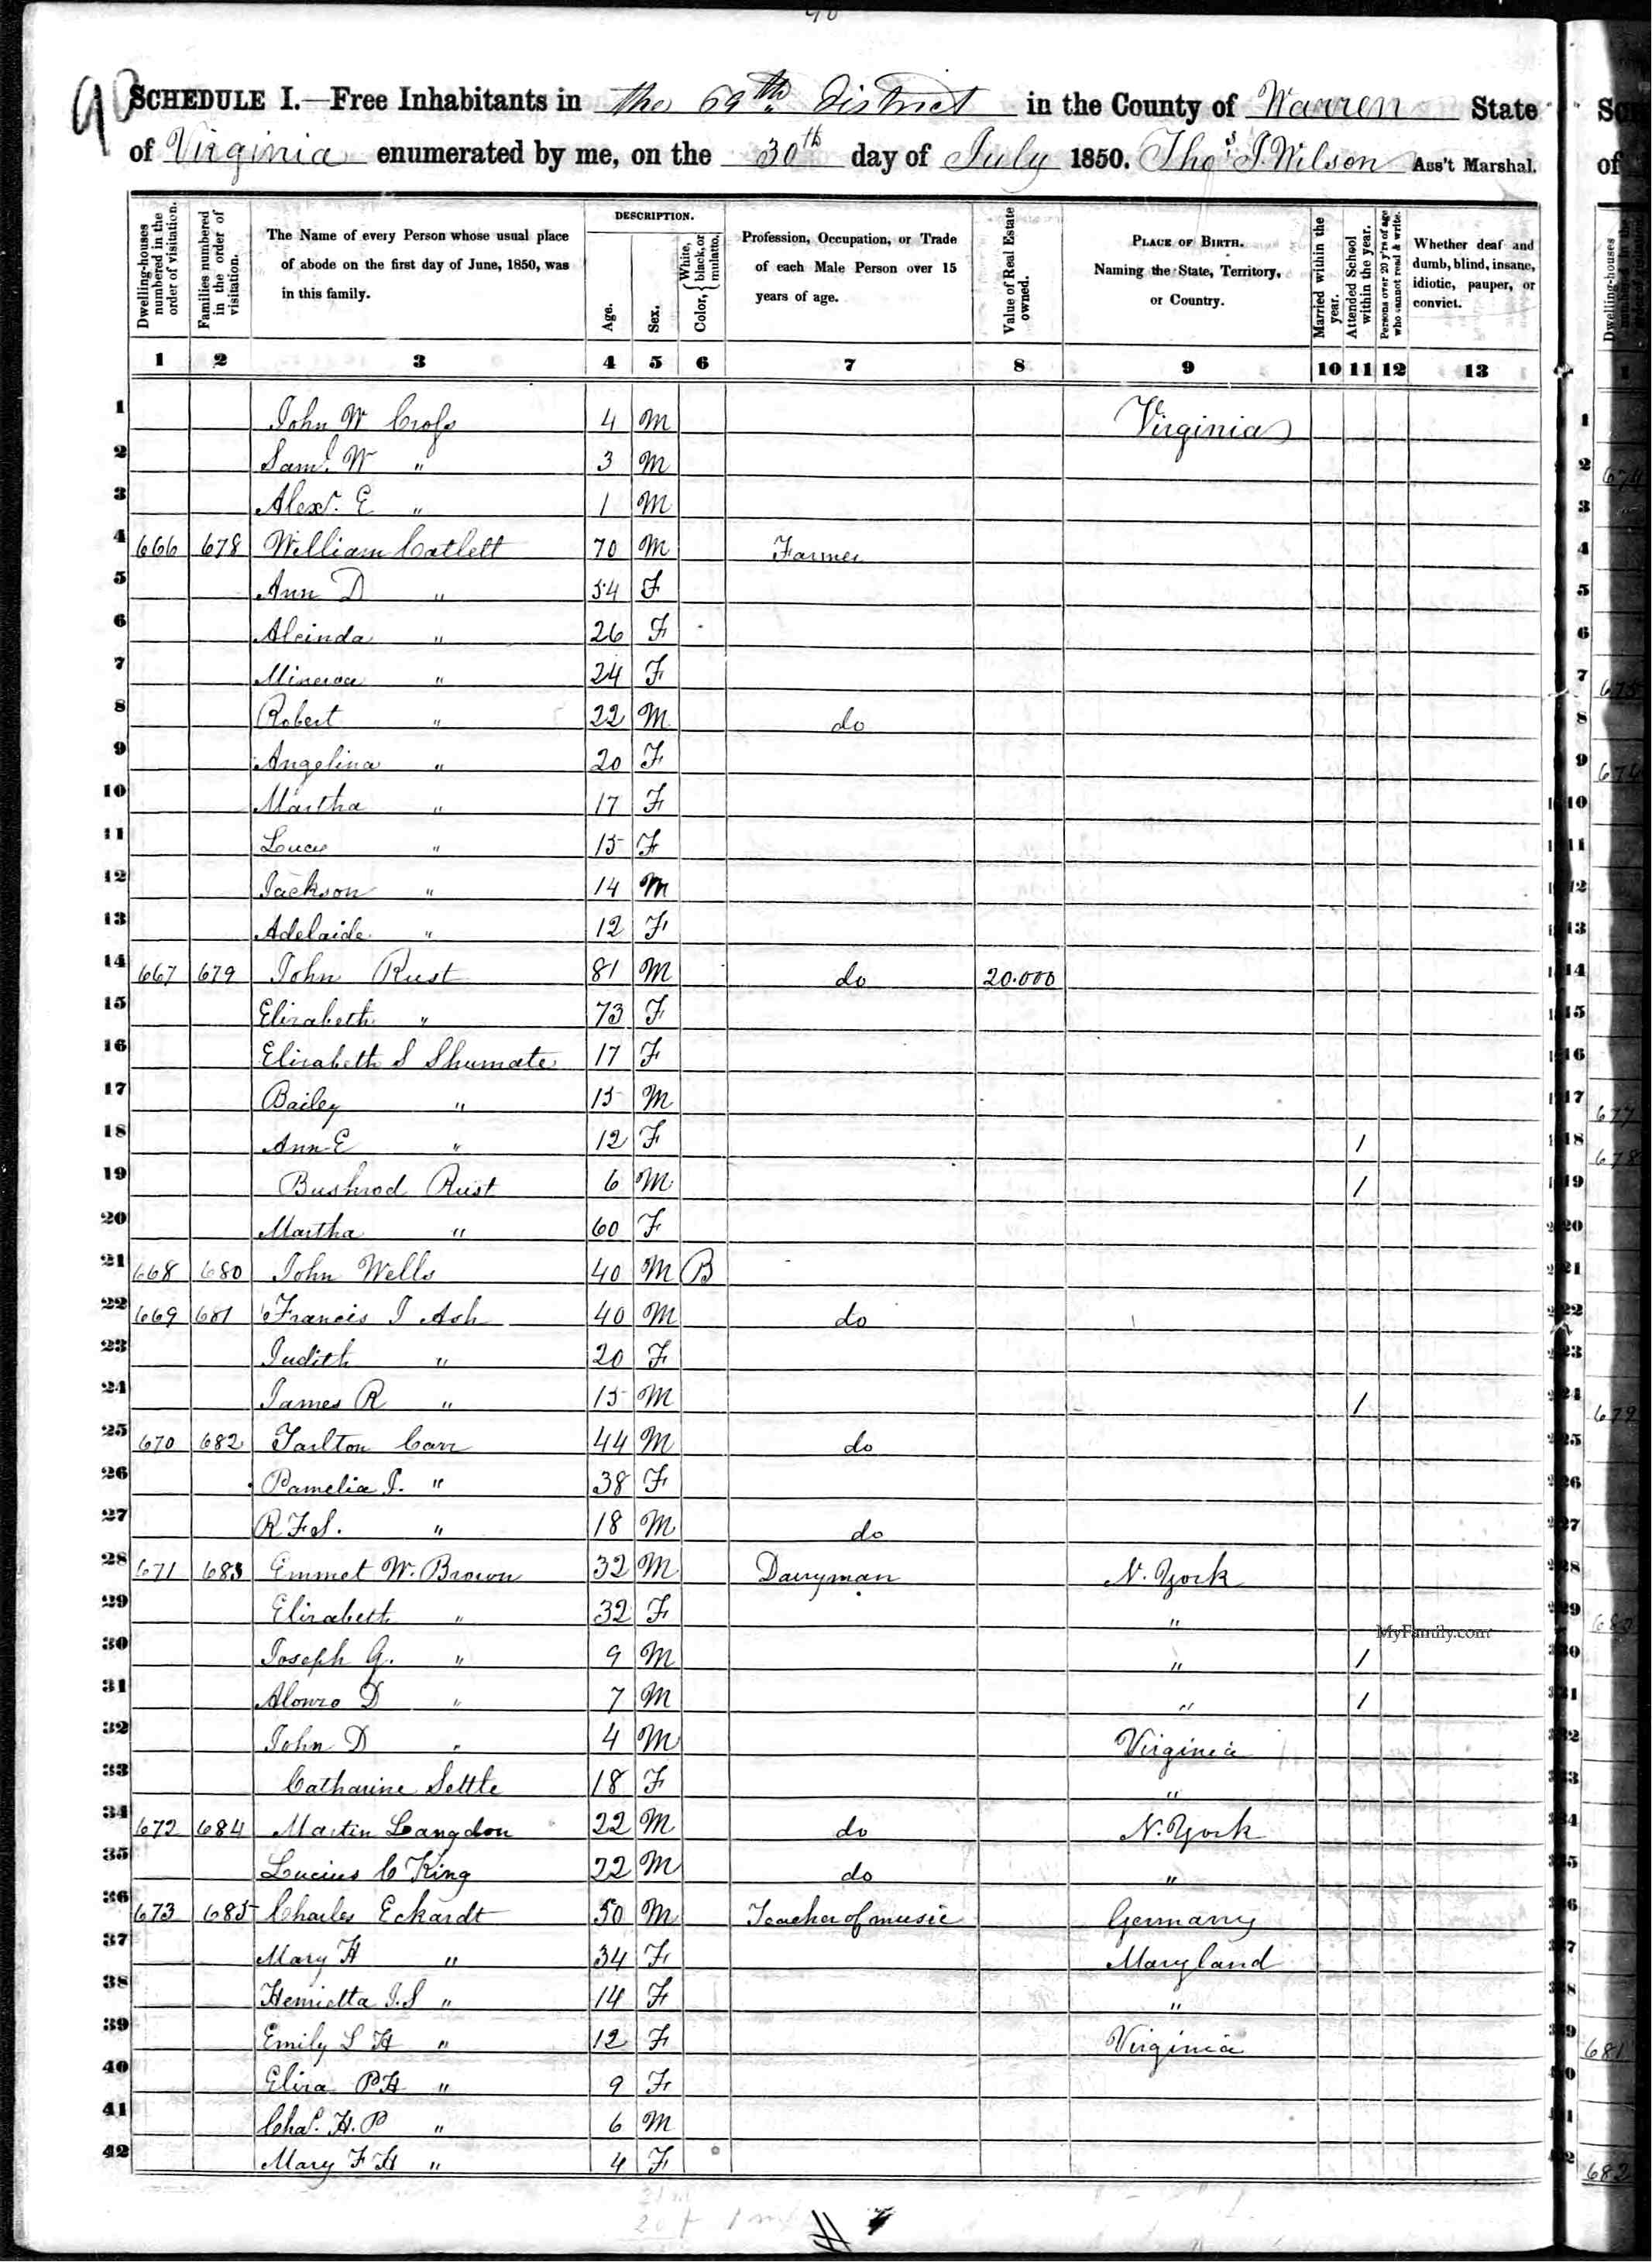 90
SCHEDULE I.—Free Inhabitants in the 69th District in the County of Warren State
of Virginia enumerated by me, on the 30th day of July 1850. Thos J. Wilson Ass't Marshal.
Dwelling-houses numbered in the order of visitation.
Families numbered in the order of visitation.
The Name of every Person whose usual place of abode on the first day of June, 1850, was in this family.
DESCRIPTION.
Age.
Sex.
Color, { White, black, or mulatto.
Profession, Occupation, or Trade of each Male Person over 15 years of age.
Value of Real Estate owned.
PLACE OF BIRTH. Naming the State, Territory, or Country.
Married within the year.
Attended School within the year.
Persons over 20 y'rs of age who cannot read & write.
Whether deaf and dumb, blind, insane, idiotic, pauper, or convict.
1 2 3 4 5 6 7 8 9 10 11 12 13
1 John W Cross 4 M Virginia
2 Saml. W " 3 M
3 Alexr. E " 1 M
4 666 678 William Catlett 70 M Farmer
5 Ann D " 54 F
6 Alcinda " 26 F
7 Minerva " 24 F
8 Robert " 22 M do
9 Angelina " 20 F
10 Martha " 17 F
11 Lucy " 15 F
12 Jackson " 14 M
13 Adelaide " 12 F
14 667 679 John Rust 81 M do 20.000
15 Elizabeth " 73 F
16 Elizabeth S Shumate 17 F
17 Bailey " 15 M
18 Ann E " 12 F 1
19 Bushrod Rust 6 M 1
20 Martha " 60 F
21 668 680 John Wells 40 M B
22 669 681 Francis J Ash 40 M do
23 Judith " 20 F
24 James R " 15 M 1
25 670 682 Tarlton Carr 44 M do
26 Pamelia J. " 38 F
27 R F S. " 18 M do
28 671 683 Emmet W. Brown 32 M Dairyman N. York
29 Elizabeth " 32 F "
MyFamily.com
30 Joseph G. " 9 M " 1
31 Alonzo D " 7 M " 1
32 John D " 4 M Virginia
33 Catharine Settle 18 F "
34 672 684 Martin Langdon 22 M do N. York
35 Lucius C King 22 M do "
36 673 685 Charles Eckardt 50 M Teacher of music Germany
37 Mary H " 34 F Maryland
38 Henrietta J. S " 14 F "
39 Emily L H " 12 F Virginia
40 Eliza P H " 9 F
41 Chas. H. P " 6 M
42 Mary F H " 4 F